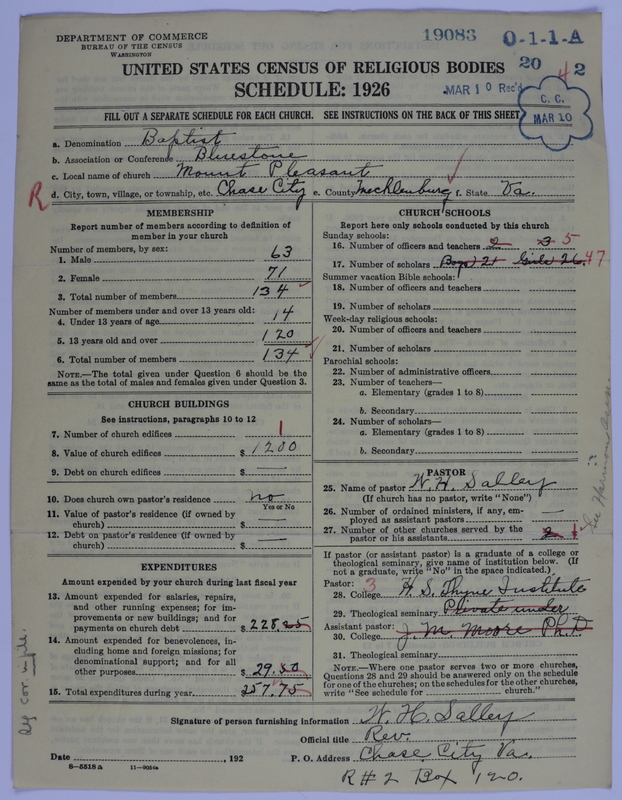 DEPARTMENT OF COMMERCE
BUREAU OF THE CENSUS
WASHINGTON
19083 0-1-1-A
20 42
MAR 10 Rec'd
C. C.
MAR 10
UNITED STATES CENSUS OF RELIGIOUS BODIES
SCHEDULE: 1926
FILL OUT A SEPARATE SCHEDULE FOR EACH CHURCH. SEE INSTRUCTIONS ON THE BACK OF THIS SHEET
a. Denomination Baptist
b. Association or Conference Bluestone
c. Local name of church Mount Pleasant
R d. City, town, village, or township, etc. Chase City e. County Mecklenburg f. State Va.
MEMBERSHIP
Report number of members according to definition of
member in your church
Number of members, by sex:
1. Male 63
2. Female 71
3. Total number of members 134
Number of members under and over 13 years old:
4. Under 13 years of age 14
5. 13 years old and over 120
6. Total number of members 134
NOTE.—The total given under Question 6 should be the
same as the total of males and females given under Question 3.
CHURCH BUILDINGS
See instructions, paragraphs 10 to 12
7. Number of church edifices 1
8. Value of church edifices $ 1200
9. Debt on church edifices $ —
10. Does church own pastor's residence no
Yes or No
11. Value of pastor's residence (if owned by
church) $ —
12. Debt on pastor's residence (if owned by
church) $ —
EXPENDITURES
Amount expended by your church during last fiscal year
13. Amount expended for salaries, repairs,
and other running expenses; for im-
provements or new buildings; and for
payments on church debt $ 228.25
14. Amount expended for benevolences, in-
cluding home and foreign missions; for
denominational support; and for all
other purposes $ 29.50
15. Total expenditures during year $ 257.75
CHURCH SCHOOLS
Report here only schools conducted by this church
Sunday schools:
16. Number of officers and teachers 2 3 5
17. Number of scholars Boys 21 Girls 26 47
Summer vacation Bible schools:
18. Number of officers and teachers
19. Number of scholars
Week-day religious schools:
20. Number of officers and teachers
21. Number of scholars
Parochial schools:
22. Number of administrative officers
23. Number of teachers—
a. Elementary (grades 1 to 8)
b. Secondary
24. Number of scholars—
a. Elementary (grades 1 to 8)
b. Secondary
PASTOR
25. Name of pastor W. H. Salley
(If church has no pastor, write "None")
26. Number of ordained ministers, if any, em-
ployed as assistant pastors —
27. Number of other churches served by the
pastor or his assistants 2 1
If pastor (or assistant pastor) is a graduate of a college or
theological seminary, give name of institution below. (If
not a graduate, write "No" in the space indicated.)
Pastor: 3
28. College H. S. Thyne Institute
29. Theological seminary Private under
Assistant pastor:
30. College J. M. Moore Ph.D
31. Theological seminary
NOTE.—Where one pastor serves two or more churches,
Questions 28 and 29 should be answered only on the schedule
for one of the churches; on the schedules for the other churches,
write "See schedule for church."
Signature of person furnishing information W. H. Salley
Official title Rev.
Date , 192 P. O. Address Chase City Va.
8—5518 a 11—9064a
R#2 Box 120.